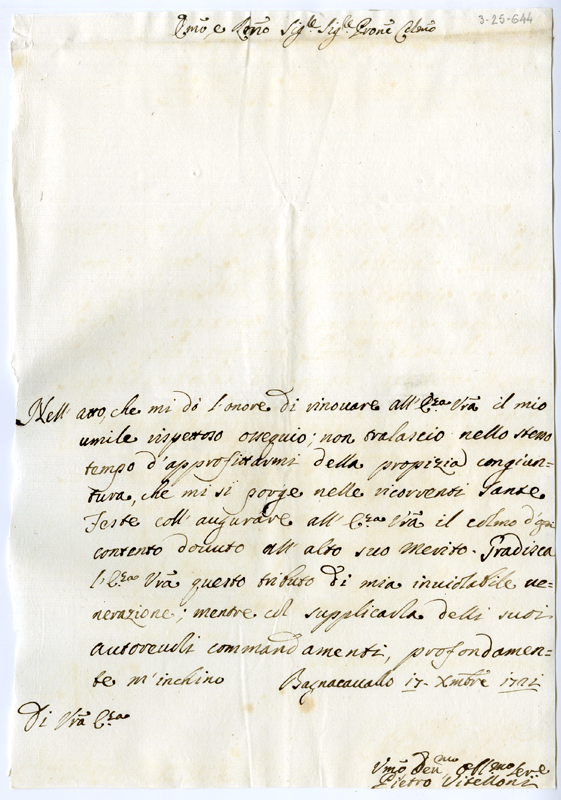 Emõ, e Revmõ Sigre Sigre Prone Colmõ
3-25-644
Nell' atto, che mi dò l'onore di rinovare all' E.za Vrã il mio
umile rispettoso ossequio; non tralascio nello stesso
tempo d'approfittarmi della propizia congiun=
tura, che mi si porge nelle ricorrenti Sante
Feste coll' augurare all' E.za Vrã il colmo d'ogni
contento dovuto all' alto suo Merito. Gradisca
l' E.za Vrã questo tributo di mia inviolabile ve=
nerazione; mentre col supplicarla delli suoi
autorevoli commandamenti, profondamen=
te m'inchino Bagnacavallo 17. Xmbre
Di Vrã E.za
Vmõ Devmo Obl.mo Ser.e
Pietro Vitelloni